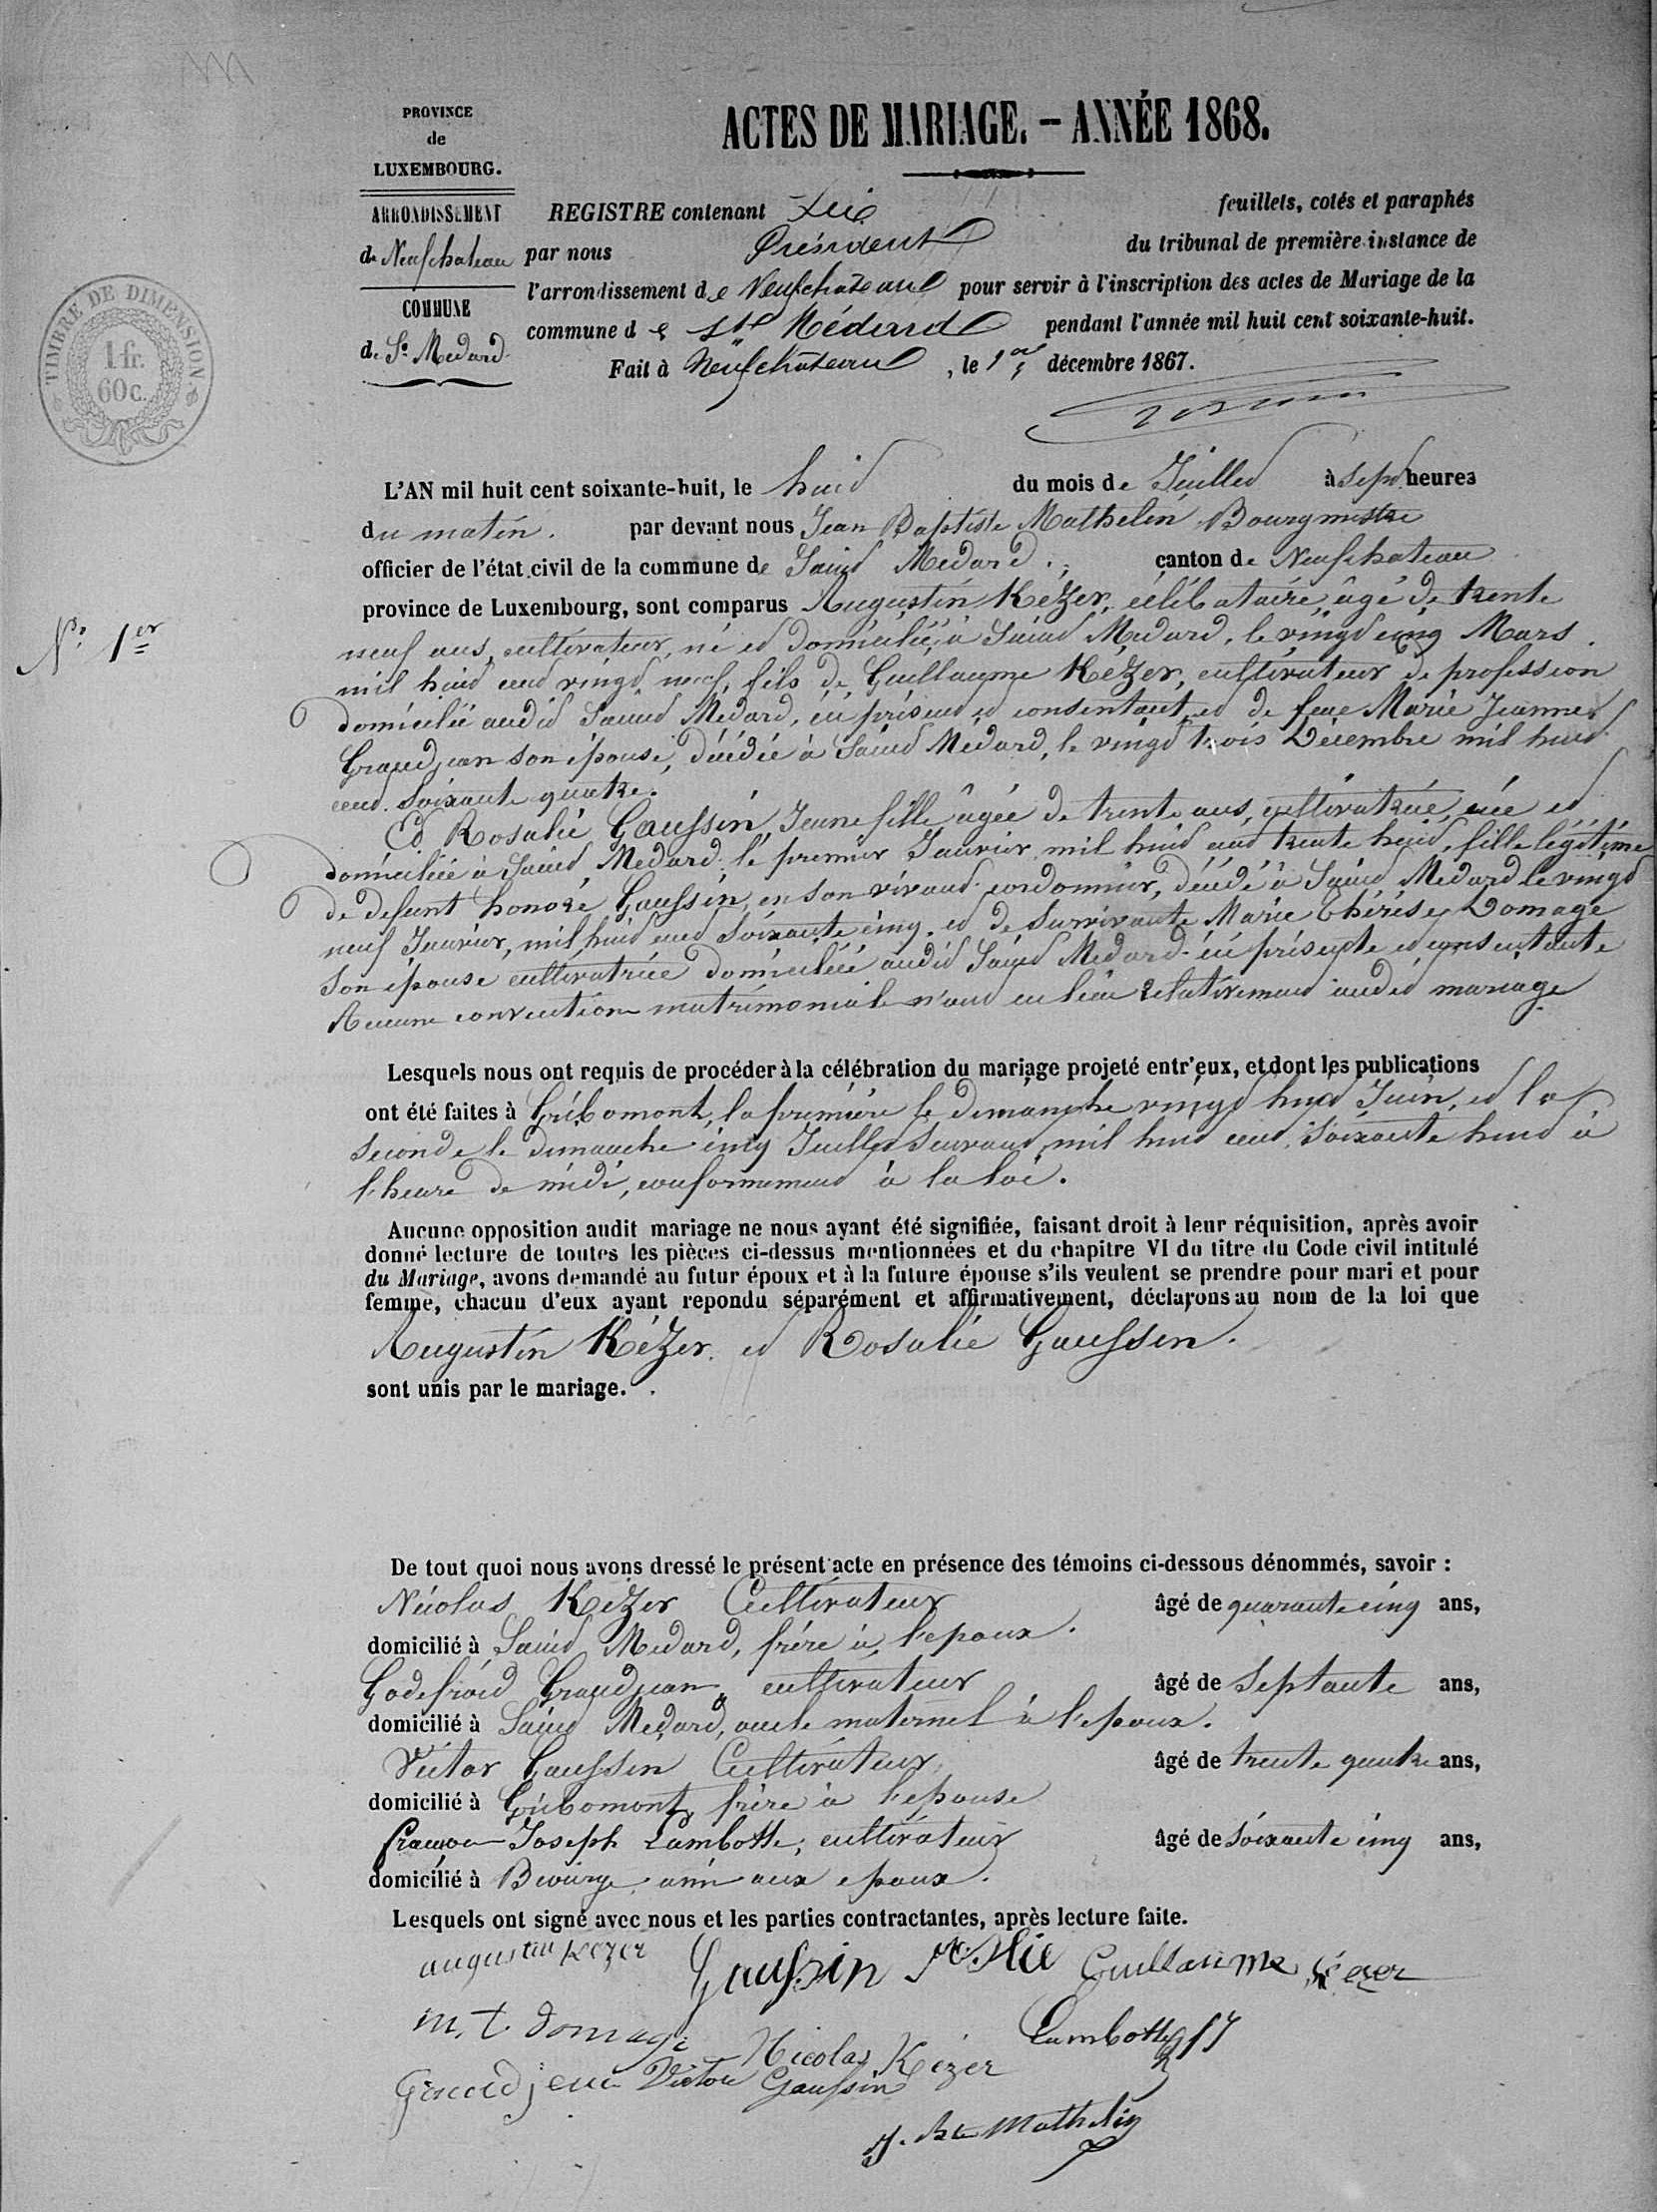 PROVINCE
de
LUXEMBOURG.
ARRONDISSEMENT
de Neufchateau
COMMUNE
de St. Medard.
TIMBRE DE DIMENSION
1 fr.
60 c.
ACTES DE MARIAGE. – ANNÉE 1868.
REGISTRE contenant feuillets, cotés et paraphés
par nous Président du tribunal de première instance de
l'arrondissement de Neufchateau pour servir à l'inscription des actes de Mariage de la
commune de St Médard pendant l'année mil huit cent soixante-huit.
Fait à Neufchateau, le 1er décembre 1867.
L'AN mil huit cent soixante-huit, le huit du mois de Juillet à sept heures
du matin. par devant nous Jean Baptiste Mathelin Bourgmestre
officier de l'état civil de la commune de Saint Medard, canton de Neufchateau
province de Luxembourg, sont comparus Augustin Kézer, célibataire, âgé de trente
N° 1er
neuf ans, cultivateur, né et domicilié à Saint Medard, le vingt cinq Mars
mil huit cent vingt neuf, fils de Guillaume Kezer, cultivateur de profession
domicilié audit Saint Médard, ici présent et consentant, et de feue Marie Jeanne
Grandjean son épouse, décédée à Saint Medard, le vingt trois Décembre mil huit
cent soixante quatre.
Et Rosalie Gaussin, Jeune fille âgée de trente ans, cultivatrice, née et
domiciliée à Saint Medard le premier Janvier mil huit cent trente huit, fille légitime
de defunt honoré Gaussin, en son vivant cordonnier, décédé à Saint Medard le vingt
neuf Janvier, mil huit cent soixante cinq, et de survivante Marie Thérèse Domage
son épouse cultivatrice domiciliée audit Saint Medard ici présente et consentante
Aucune convention matrimoniale n'a eu lieu relativement audit mariage
Lesquels nous ont requis de procéder à la célébration du mariage projeté entr'eux, et dont les publications
ont été faites à Gribomont, la première le dimanche vingt huit Juin, et la
seconde le dimanche cinq Juillet suivant mil huit cent soixante huit à
l'heure de midi, conformement à la loi.
Aucune opposition audit mariage ne nous ayant été signifiée, faisant droit à leur réquisition, après avoir
donné lecture de toutes les pièces ci-dessus mentionnées et du chapitre VI du titre du Code civil intitulé
du Mariage, avons demandé au futur époux et à la future épouse s'ils veulent se prendre pour mari et pour
femme, chacun d'eux ayant repondu séparément et affirmativement, déclarons au nom de la loi que
Augustin Kézer et Rosalie Gaussin.
sont unis par le mariage.
De tout quoi nous avons dressé le présent acte en présence des témoins ci-dessous dénommés, savoir :
Nicolas Kézer Cultivateur âgé de quarante cinq ans,
domicilié à Saint Medard, frère à l'epoux.
Godefroid Grandjean, cultivateur âgé de Septante ans,
domicilié à Saint Medard, oncle maternel à l'epoux.
Victor Gaussin Cultivateur, âgé de trente quatre ans,
domicilié à Gribomont, frère à l'epouse
françois Joseph Lambotte, cultivateur âgé de soixante cinq ans,
domicilié à ami aux epoux.
Lesquels ont signé avec nous et les parties contractantes, après lecture faite.
augustin Kezer Gaussin Guillaume Kezer
m. t. domage Nicolas Kézer Lambotte f J
Grandjean Victor Gaussin
J. Bte Mathelin